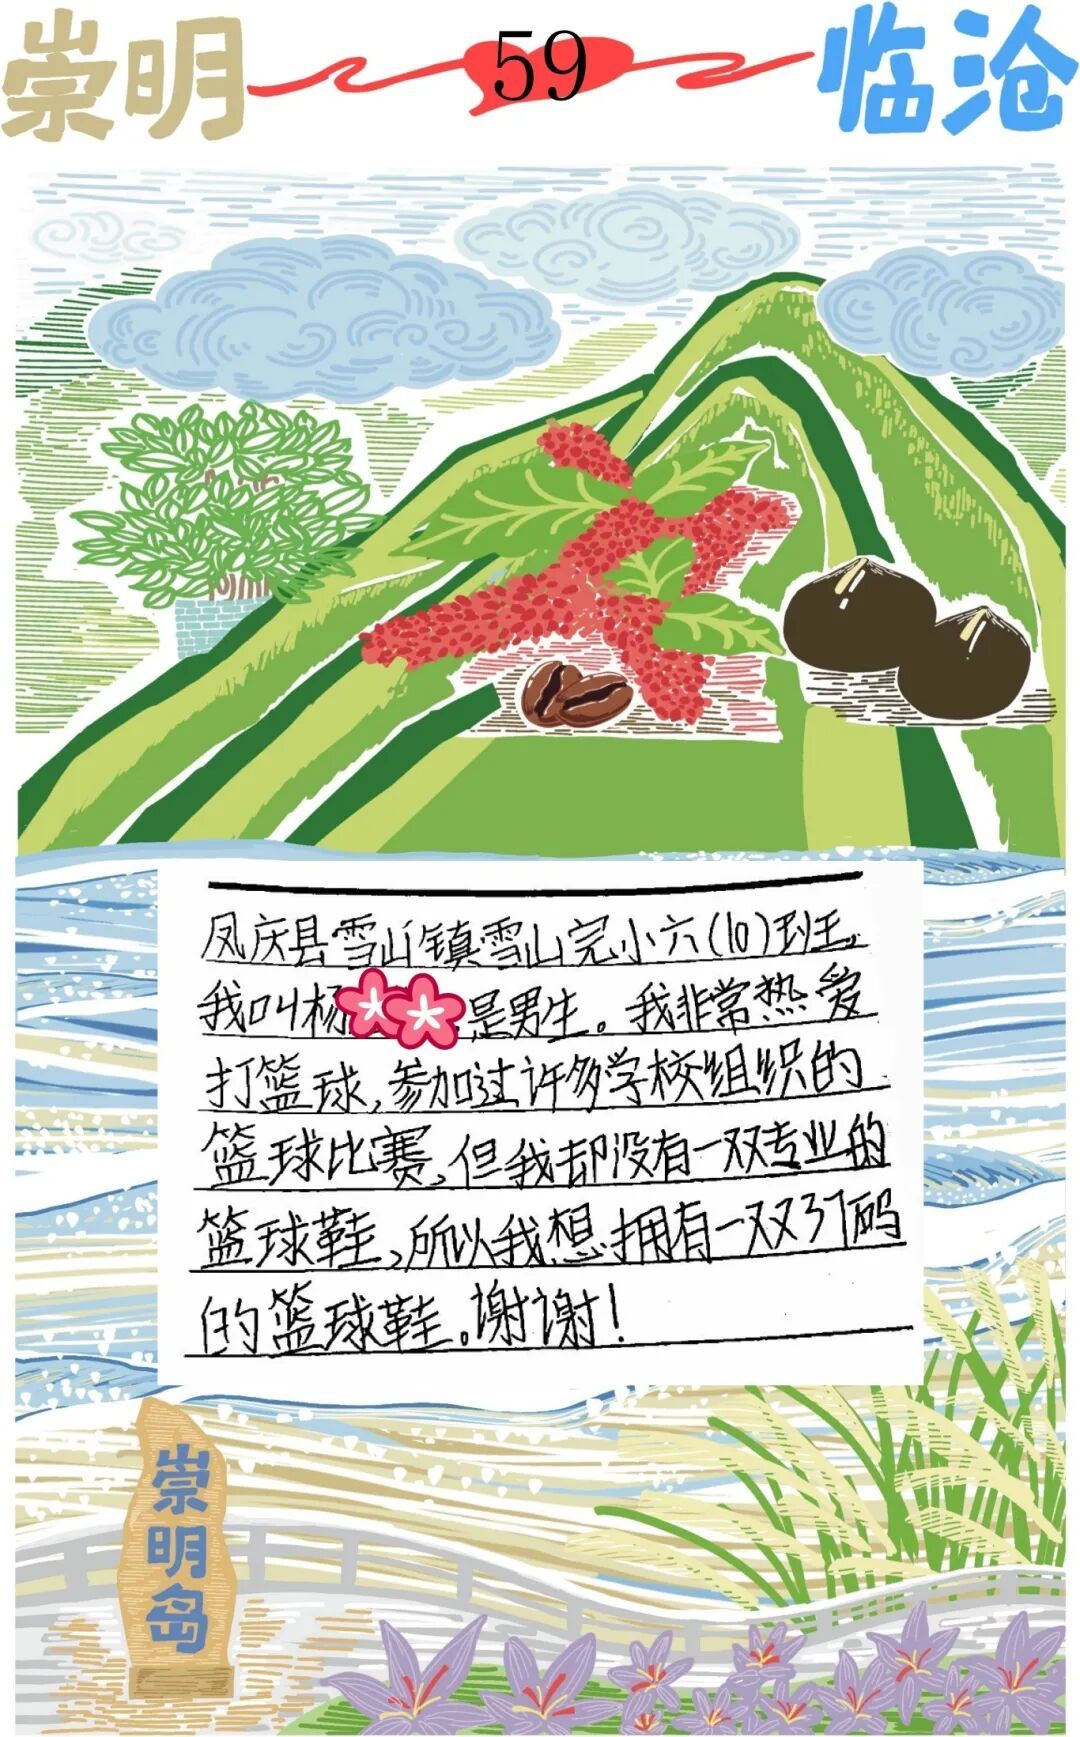 崇明 59 临沧
凤庆县雪山镇雪山完小六(10)班,
我叫杨 是男生。我非常热爱
打篮球,参加过许多学校组织的
篮球比赛,但我却没有一双专业的
篮球鞋,所以我想拥有一双37码
的篮球鞋。谢谢!
崇明岛